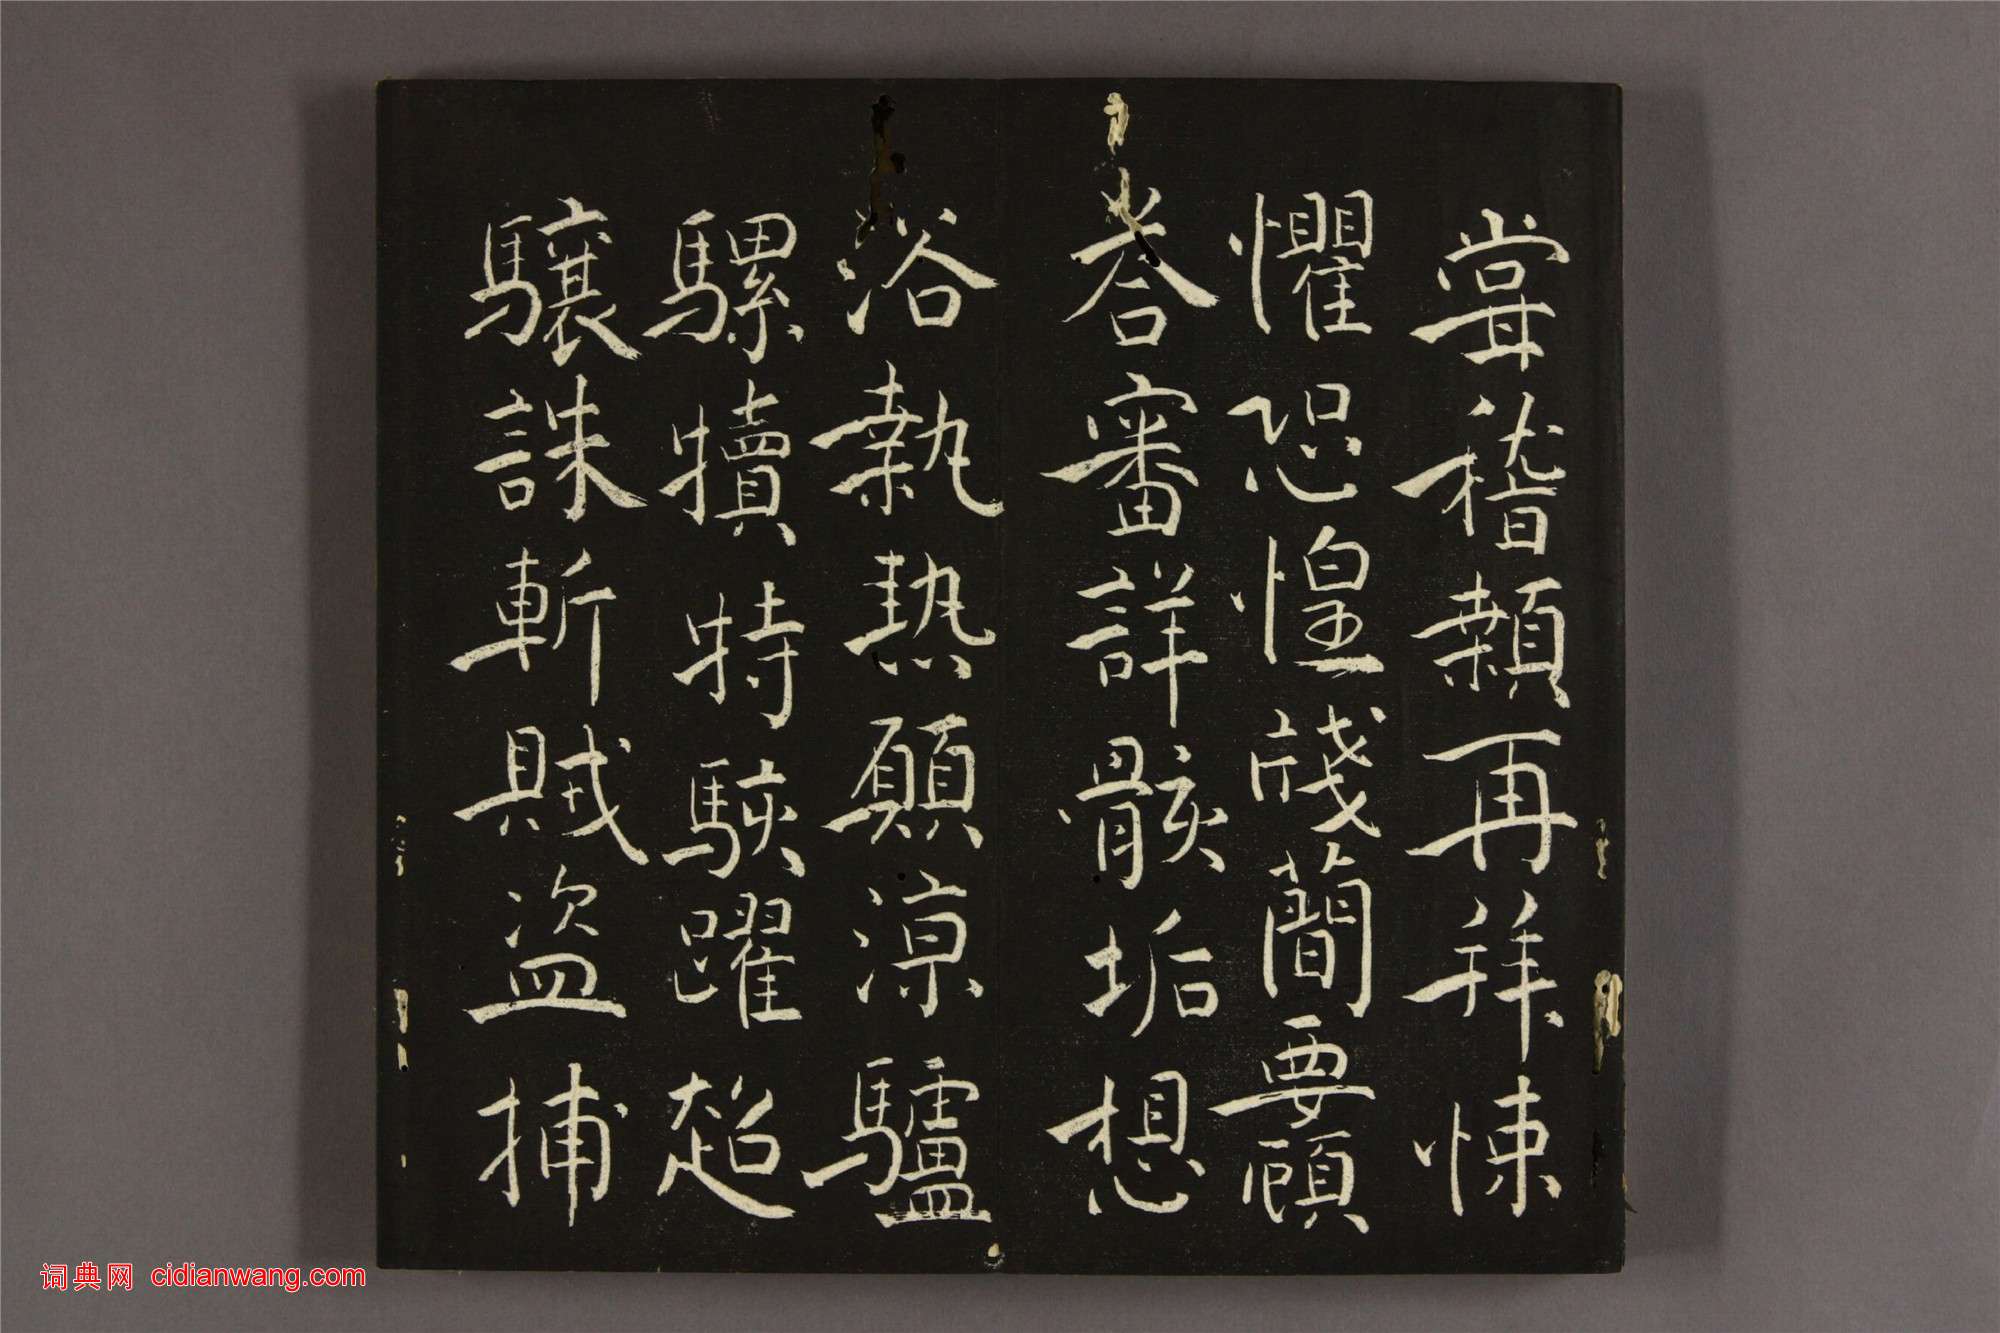 甞稽顙再拜悚
懼恐惶牋蕳要顧
荅審詳骸垢想
浴執热願涼驢
騾犢特駭躍超
驤誅斬賊盗捕
词典网 cidianwang.com